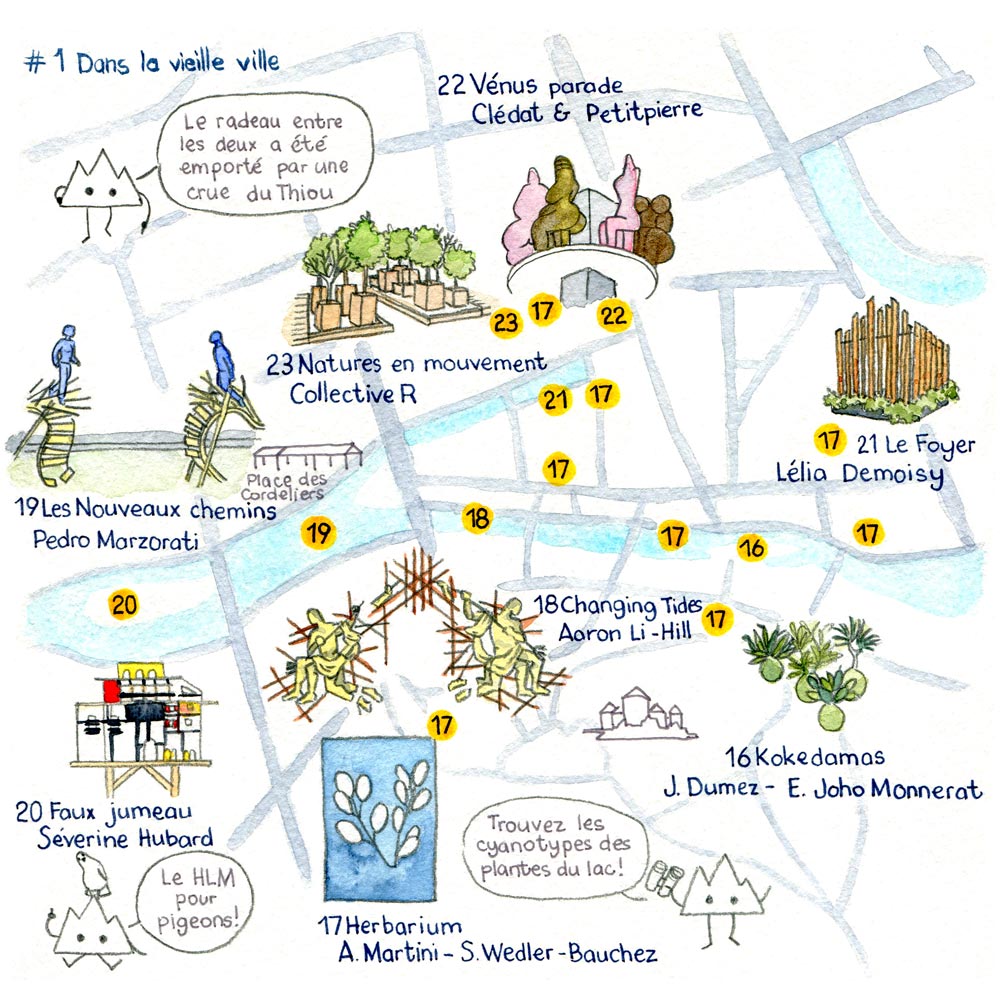 # 1 Dans la vieille ville
22 Vénus parade
Clédat & Petitpierre
Le radeau entre
les deux a été
emporté par une
crue du Thiou
23
17
22
23 Natures en mouvement
Collective R
21
17
17
21 Le Foyer
Lélia Demoisy
17
Place des
Cordeliers
19 Les Nouveaux chemins
Pedro Marzorati
19
18
17
16
17
20
18 Changing Tides
Aaron Li-Hill
17
17
16 Kokedamas
J. Dumez - E. Joho Monnerat
20 Faux jumeau
Séverine Hubard
Le HLM
pour
pigeons!
Trouvez les
cyanotypes des
plantes du lac!
17 Herbarium
A. Martini - S. Wedler-Bauchez